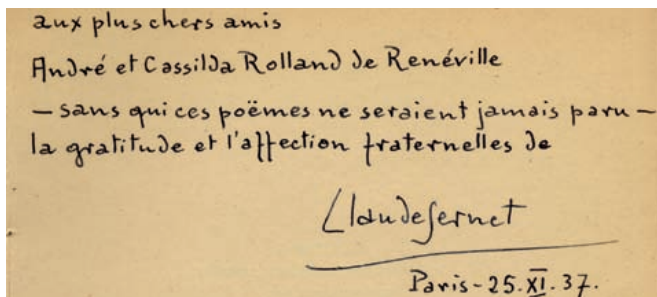 aux plus chers amis
André et Cassilda Rolland de Renéville
— sans qui ces poëmes ne seraient jamais paru —
la gratitude et l'affection fraternelles de
Claude Sernet
Paris - 25.XI.37.